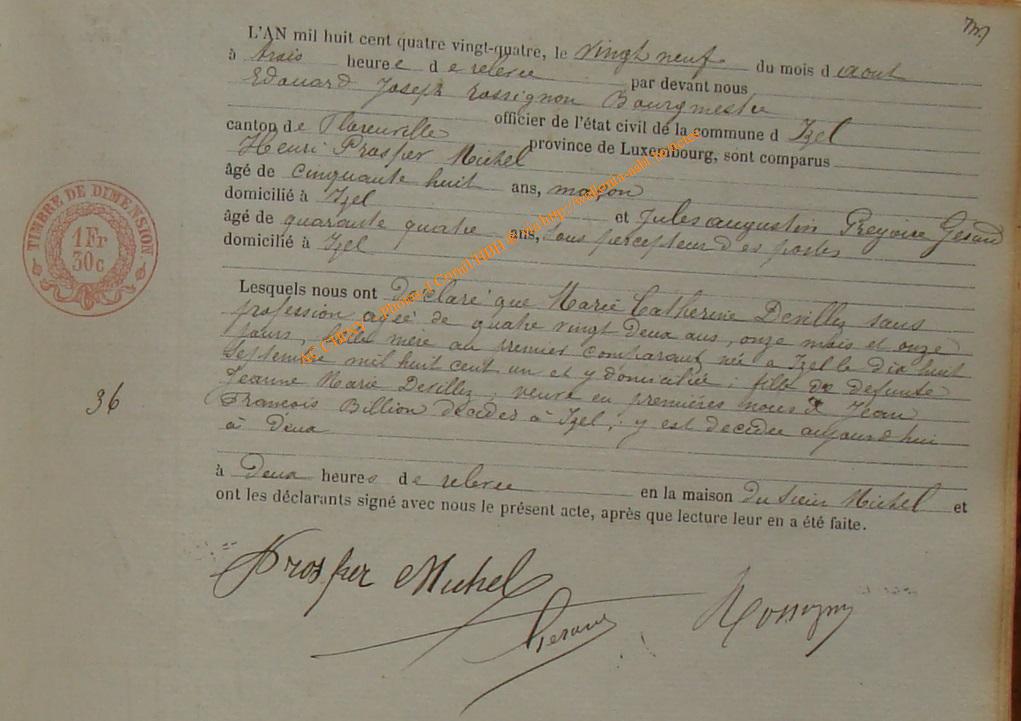 L'AN mil huit cent quatre vingt-quatre, le vingt neuf du mois d'aout
à trois heures de relevée par devant nous
Edouard Joseph Rossignon Bourgmestre
officier de l'état civil de la commune d'Izel
canton de Florenville province de Luxembourg, sont comparus
Henri Prosper Michel
âgé de cinquante huit ans, maçon
domicilié à Izel et Jules augustin Gerard
âgé de quarante quatre ans, sous percepteur des postes
domicilié à Izel
Lesquels nous ont declaré que Marie Catherine Devillez sans
profession agée de quatre vingt deux ans, onze mois et onze
jours, belle mère au premier comparant née a Izel le dix huit
Septembre mil huit cent un et y domiciliée; fille de defunte
Jeanne Marie Devillez, veuve en premières noces de Jean
Francois Billion décédés à Izel, y est decédée aujourd'hui
à deux
à Deux heures de relevée en la maison du sieur Michel et
ont les déclarants signé avec nous le présent acte, après que lecture leur en a été faite.
36
TIMBRE DE DIMENSION
1 Fr
30c
Prosper Michel
Gerard
Rossignon